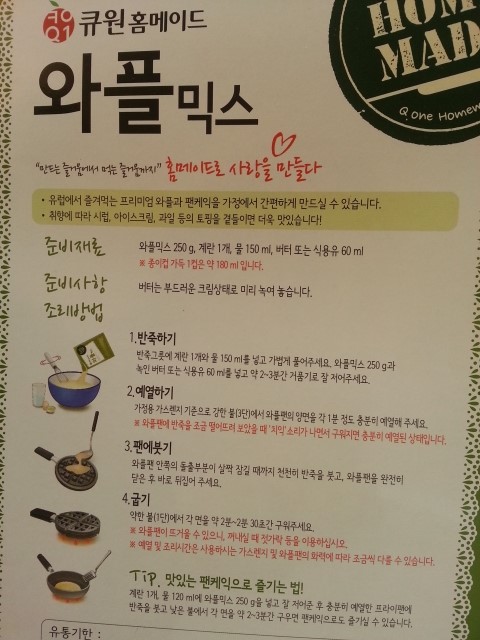 큐원
Q1
큐원 홈메이드
HOM
MAD
Q.one Homem
와플믹스
"만드는 즐거움에서 먹는 즐거움까지" 홈메이드로 사랑을 만들다
• 유럽에서 즐겨먹는 프리미엄 와플과 팬케익을 가정에서 간편하게 만드실 수 있습니다.
• 취향에 따라 시럽, 아이스크림, 과일 등의 토핑을 곁들이면 더욱 맛있습니다!
준비재료 와플믹스 250 g, 계란 1개, 물 150 ml, 버터 또는 식용유 60 ml
※ 종이컵 가득 1컵은 약 180 ml 입니다.
준비사항 버터는 부드러운 크림상태로 미리 녹여 놓습니다.
조리방법
1.반죽하기
반죽그릇에 계란 1개와 물 150 ml를 넣고 가볍게 풀어주세요. 와플믹스 250 g과
녹인 버터 또는 식용유 60 ml를 넣고 약 2~3분간 거품기로 잘 저어주세요.
2.예열하기
가정용 가스렌지 기준으로 강한 불(3단)에서 와플팬의 양면을 각 1분 정도 충분히 예열해 주세요.
※ 와플팬에 반죽을 조금 떨어뜨려 보았을 때 '치익' 소리가 나면서 구워지면 충분히 예열된 상태입니다.
3.팬에붓기
와플팬 안쪽의 돌출부분이 살짝 잠길 때까지 천천히 반죽을 붓고, 와플팬을 완전히
닫은 후 바로 뒤집어 주세요.
4.굽기
약한 불(1단)에서 각 면을 약 2분~2분 30초간 구워주세요.
※ 와플팬이 뜨거울 수 있으니, 꺼내실 때 젓가락 등을 이용하십시오.
※ 예열 및 조리시간은 사용하시는 가스렌지 및 와플팬의 화력에 따라 조금씩 다를 수 있습니다.
Tip. 맛있는 팬케익으로 즐기는 법!
계란 1개, 물 120 ml에 와플믹스 250 g을 넣고 잘 저어준 후 충분히 예열한 프라이팬에
반죽을 붓고 낮은 불에서 각 면을 약 2~3분간 구우면 팬케익으로도 즐기실 수 있습니다.
유통기한 :